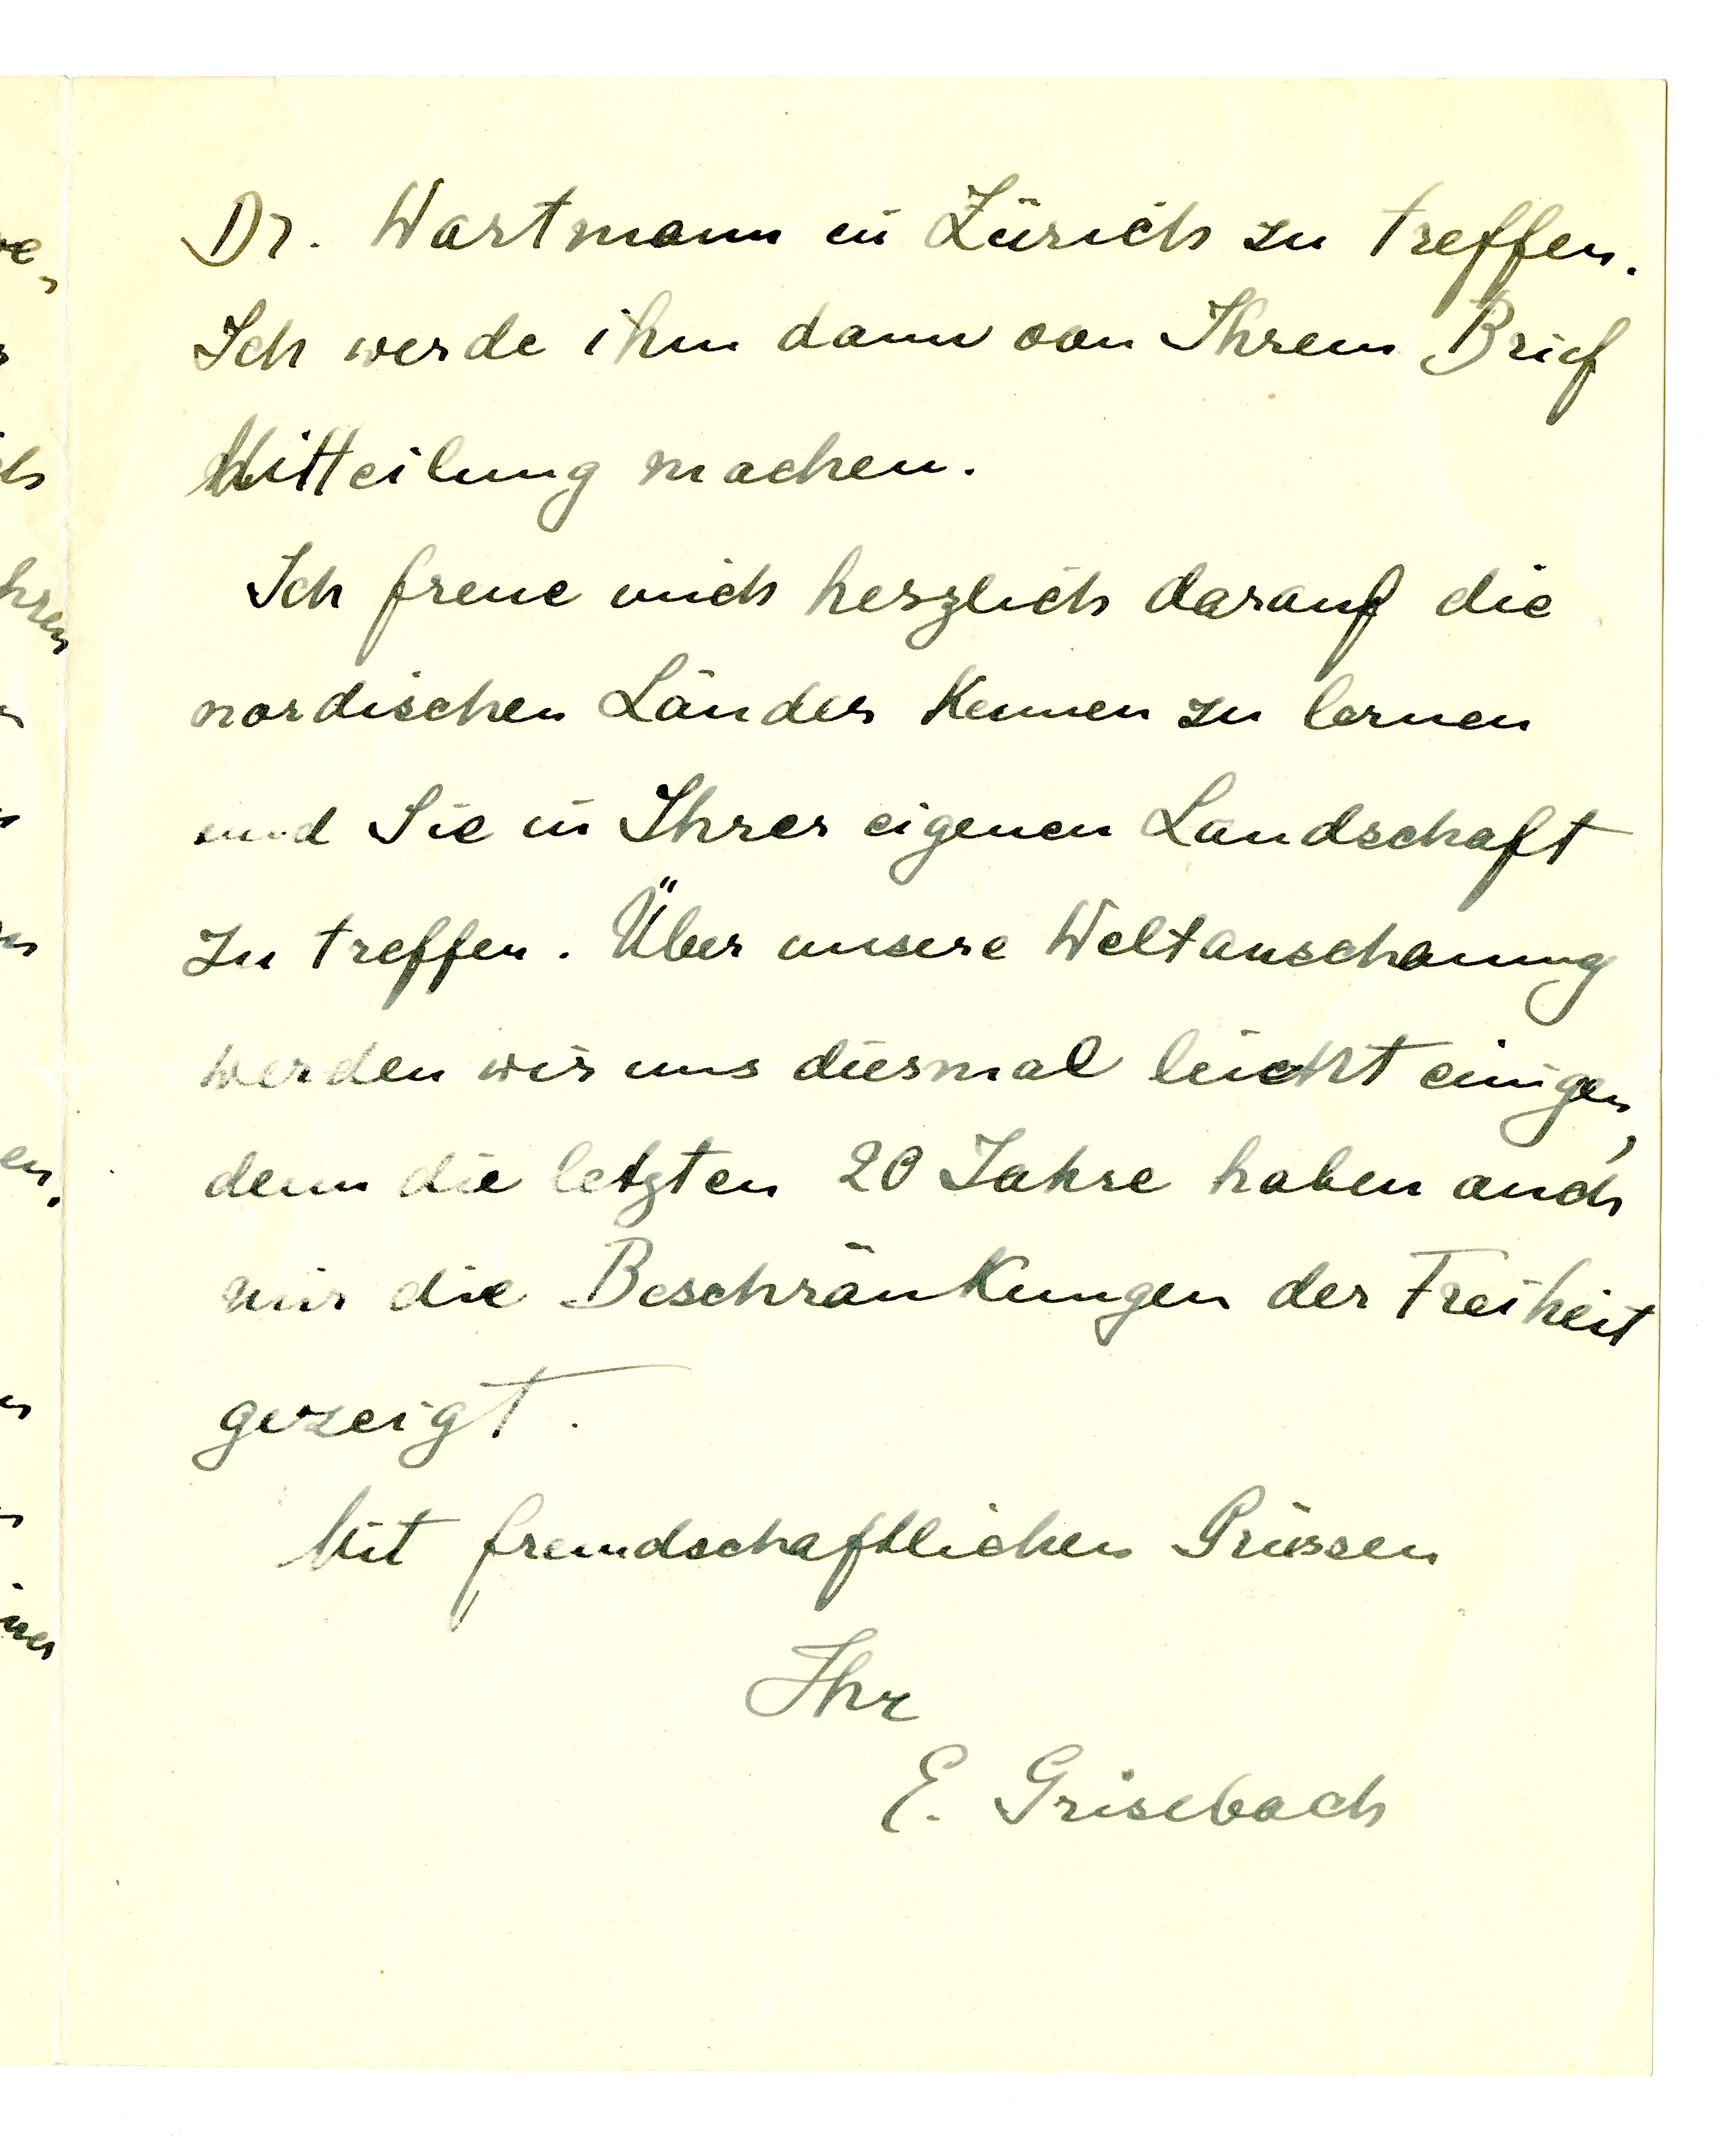 Dr. Wartmann in Zürich zu treffen.
Ich werde ihm dann von Ihrem Brief
Mitteilung machen.
Ich freue mich herzlich darauf die
nordischen Länder kennen zu lernen
und Sie in Ihrer eigenen Landschaft
zu treffen. Über unsere Weltanschauung
werden wir uns diesmal leicht einigen,
denn die letzten 20 Jahre haben auch
mir die Beschränkungen der Freiheit
gezeigt.
Mit freundschaftlichen Grüssen
Ihr
E. Grisebach